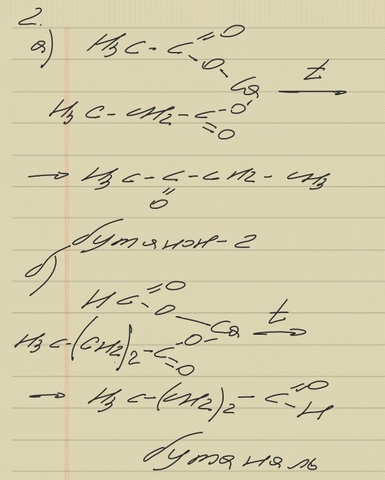 2.
а) H3C-C(=O)-O-
Ca t→
H3C-CH2-C(=O)-O-
→ H3C-C(=O)-CH2-CH3
бутанон-2
б) HC(=O)-O-
Ca t→
H3C-(CH2)2-C(=O)-O-
→ H3C-(CH2)2-C(=O)-H
бутаналь